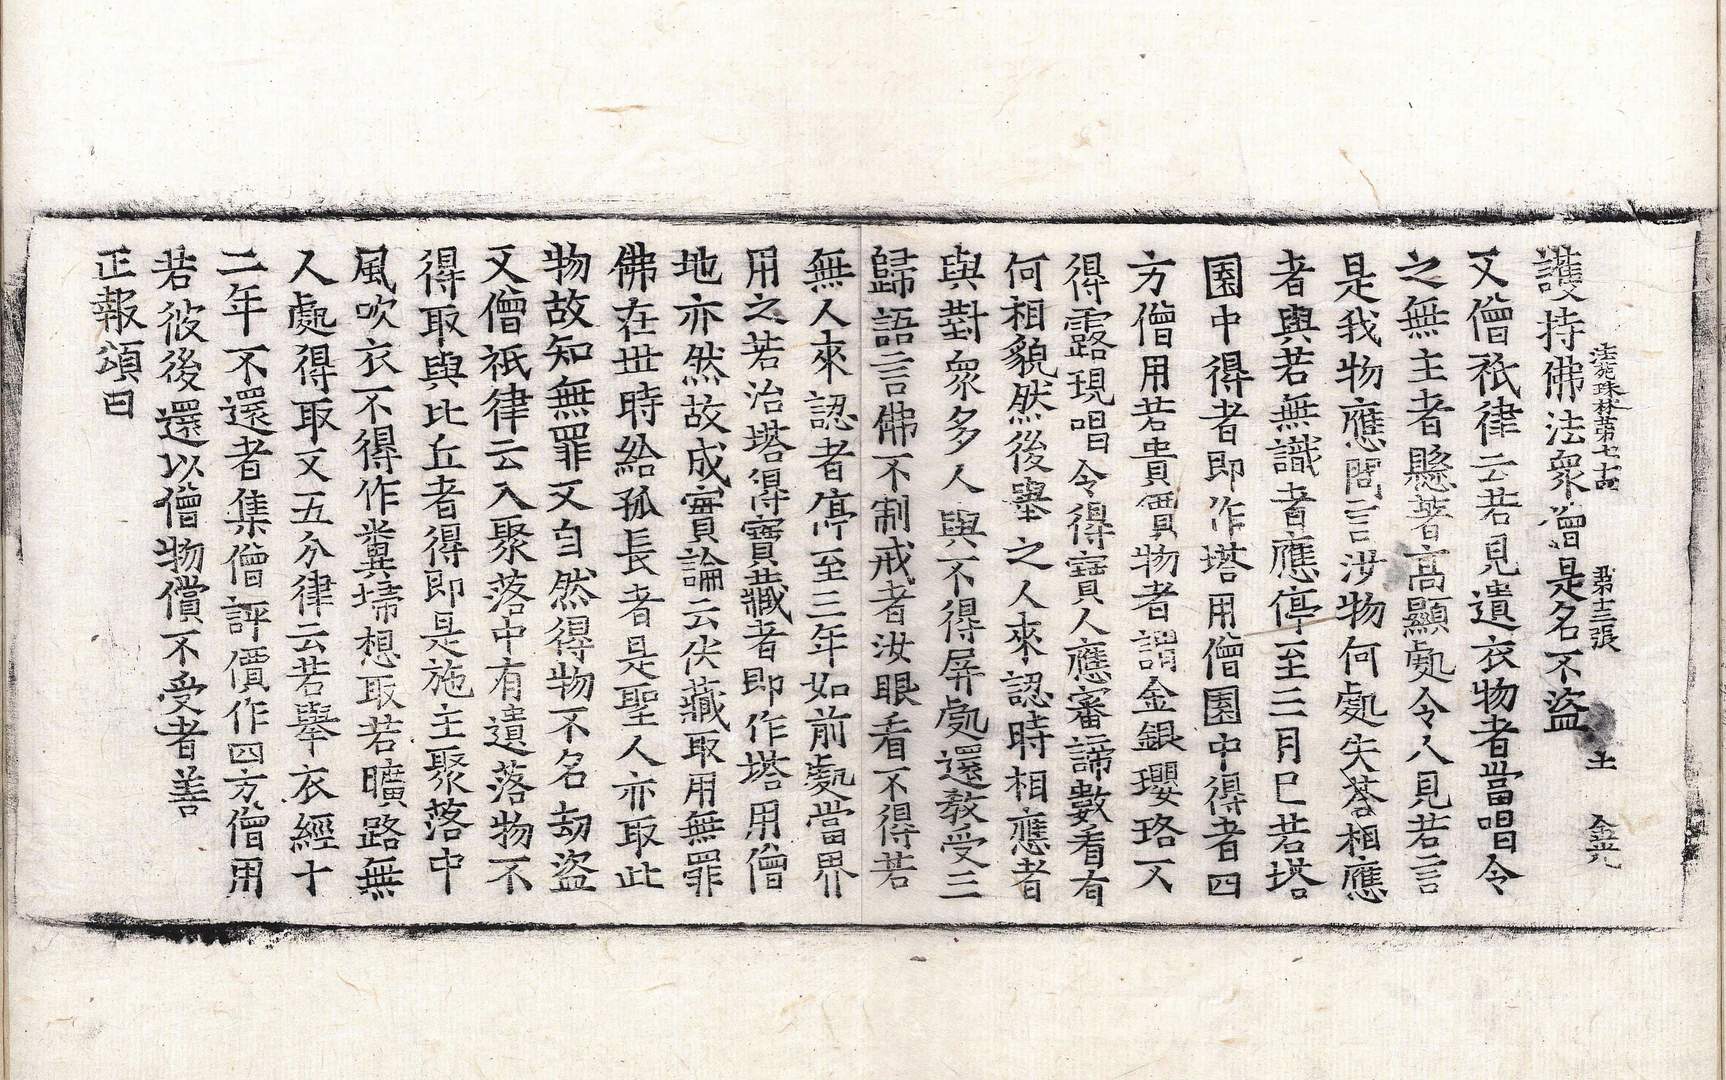 法苑珠林第七十四 第十三張 土 金亮
護持佛法衆僧是名不盜
又僧祇律云若見遺衣物者當唱令
之無主者懸著高顯處令人見若言
是我物應問言汝物何處失荅相應
者與若無識者應停至三月巳若塔
園中得者即作塔用僧園中得者四
方僧用若貴價物者謂金銀瓔珞不
得露現唱令得寶人應審諦數看有
何相貌然後舉之人來認時相應者
與對衆多人與不得屏處還教受三
歸語言佛不制戒者汝眼看不得若
無人來認者停至三年如前處當界
用之若治塔得寶藏者即作塔用僧
地亦然故成實論云伏藏取用無罪
佛在世時給孤長者是聖人亦取此
物故知無罪又自然得物不名劫盜
又僧祇律云入聚落中有遺落物不
得取與比丘者得即是施主聚落中
風吹衣不得作糞掃想取若曠路無
人處得取又五分律云若舉衣經十
二年不還者集僧評價作四方僧用
若彼後還以僧物償不受者善
正報頌曰